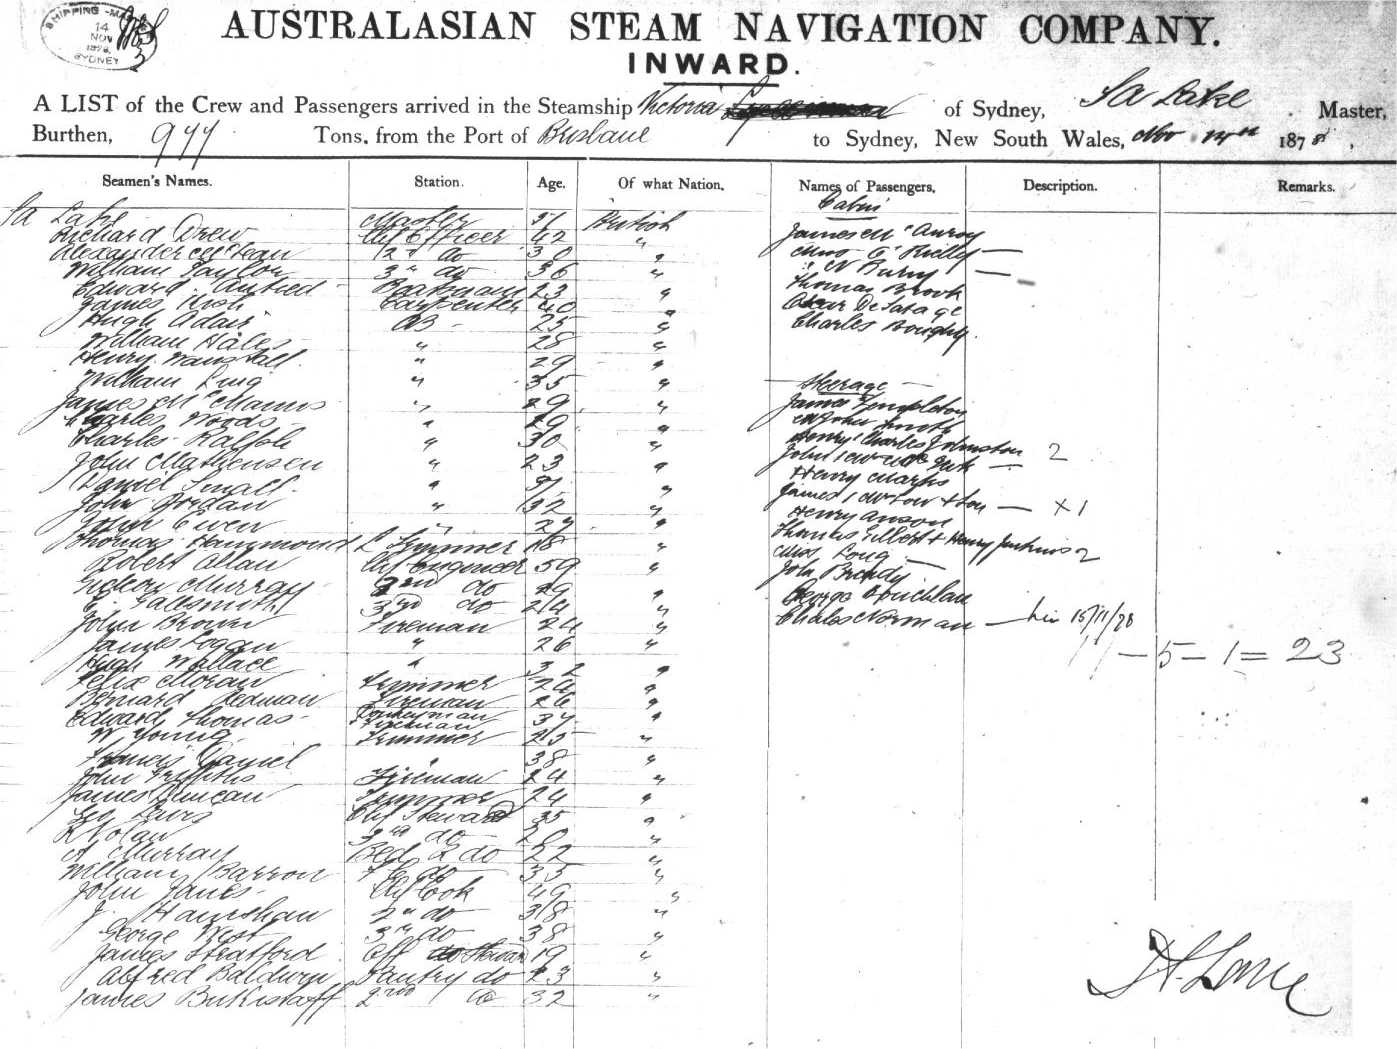 SHIPPING MA
14
NOV
1878
SYDNEY
AUSTRALASIAN STEAM NAVIGATION COMPANY.
INWARD.
A LIST of the Crew and Passengers arrived in the Steamship Victoria of Sydney, Lake Master,
Burthen, 977 Tons, from the Port of Brisbane to Sydney, New South Wales, Nov 1878,
Seamen's Names. Station. Age. Of what Nation. Names of Passengers. Description. Remarks.
Cabin
Lake Master British
Richard Drew Chf Officer 42 "
Alexander McLean 2nd do 30 "
William Taylor 3rd do 36 "
Edward Boatswain 23 "
James Carpenter 40 "
Hugh Adair AB 25 "
William Hales " 28 "
Henry " 29 "
William " 35 "
James McManus " 29 "
Charles Woods " 29 "
Charles Ralph " 30 "
John Mathensen " 23 "
Daniel Small " "
John Jordan " 32 "
John Owen " 27 "
Thomas Hammond Trimmer 18 "
Robert Allan Chf Engineer 59 "
Murray 2nd do 29 "
Gallsmith 3rd do 24 "
John Brown Fireman 24 "
James Logan " 26 "
Hugh Wallace " 32 "
Felix Moran Trimmer 24 "
Bernard Redman Fireman 26 "
Edward Thomas Donkeyman Fireman 37 "
W Young Trimmer 25 "
Francis Daniel " 38 "
John Griffiths Fireman 24 "
James Duncan Trimmer 24 "
Geo Lewis Chf Steward 35 "
Nolan do 20 "
A Murray Bed 2 do 22 "
William Barron do 35 "
John Janes Chf Cook 49 "
J. Hanrahan 2nd do 38 "
George West 3rd do 38 "
James Stratford Off 19 "
Alfred Baldwin Pantry do 23 "
James 2nd do 32 "
James
Miss Rielly —
—
Thomas Brook
Oscar De Satage
Charles
Steerage
James Templeton
John Smith
Henry Charles Johnston 2
John —
Henry Marks
James + son — x 1
Henry Anson
Thomas Gilbert + Henry Jenkins 2
Miss Long —
John Brady
George
Charles Norman — 15/11/78
— 5 — 1 = 23